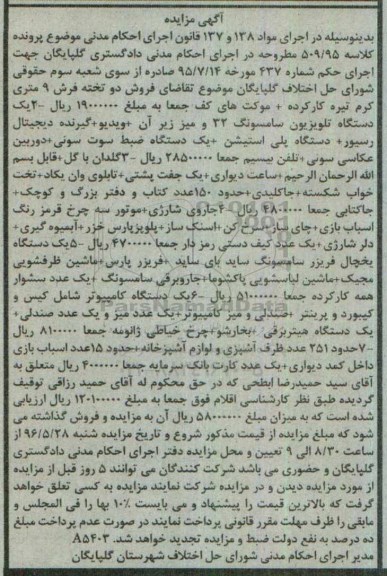 آگهی مزایده
بدینوسیله در اجرای مواد ۱۳۸ و ۱۳۷ قانون اجرای احکام مدنی موضوع پرونده
کلاسه ۵۰۹/۹۵ مطروحه در اجرای احکام مدنی دادگستری گلپایگان جهت
اجرای حکم شماره ۴۳۷ مورخه ۹۵/۷/۱۴ صادره از سوی شعبه سوم حقوقی
شورای حل اختلاف گلپایگان موضوع تقاضای فروش دو تخته فرش ۹ متری
کرم تیره کارکرده + موکت های کف جمعا به مبلغ ۱۹۰۰۰۰۰۰ ریال -۲یک
دستگاه تلویزیون سامسونگ ۳۲ و میز زیر آن +ویدیو+گیرنده دیجیتال
رسیور+ دستگاه پلی استیشن +یک دستگاه ضبط سوت سونی+دوربین
عکاسی سونی+تلفن بیسیم جمعا ۲۸۵۰۰۰۰۰ ریال -۳گلدان با گل+قابل بسم
الله الرحمان الرحیم+ساعت دیواری+یک جفت پشتی+تابلوی وان یکاد+تخت
خواب شکسته+جاکلیدی+حدود ۱۵۰عدد کتاب و دفتر بزرگ و کوچک+
جاکتابی جمعا ۴۸۰۰۰۰۰ ریال -۴جاروی شارژی+موتور سه چرخ قرمز رنگ
اسباب بازی+چای ساز+سرخ کن+اسنک ساز+پلوپزپارس خزر+آبمیوه گیری+
دلر شارژی+یک عدد کیف دستی رمز دار جمعا ۴۷۰۰۰۰۰ ریال -۵یک دستگاه
یخچال فریزر سامسونگ ساید بای ساید +فریزر پارس+ماشین ظرفشویی
مجیک+ماشین لباسشویی پاکشوما+جاروبرقی سامسونگ +یک عدد سشوار
همه کارکرده جمعا ۵۱۰۰۰۰۰۰ ریال -۶یک دستگاه کامپیوتر شامل کیس و
کیبورد و پرینتر +صندلی و میز کامپیوتر+یک عدد میز و یک عدد صندلی+
یک دستگاه هیتربرقی +بخارشو+چرخ خیاطی ژانومه جمعا ۸۱۰۰۰۰۰ ریال
-۷حدود ۲۵۱ عدد ظرف آشپزی و لوازم آشپزخانه+حدود ۱۵عدد اسباب بازی
داخل کمد دیواری+یک عدد کارت بانک سرمایه جمعا ۴۰۰۰۰۰۰ ریال متعلق به
آقای سید حمیدرضا ابطحی که در حق محکوم له آقای حمید رزاقی توقیف
گردیده طبق نظر کارشناسی اقلام فوق جمعا به مبلغ ۱۲۰۱۰۰۰۰۰ ریال ارزیابی
شده است که به میزان مبلغ ۵۸۰۰۰۰۰۰ ریال آن به مزایده و فروش گذاشته می
شود که مبلغ مزایده از قیمت مذکور شروع و تاریخ مزایده شنبه ۹۶/۵/۲۸ از
ساعت ۸/۳۰ الی ۹ تعیین و محل مزایده دفتر اجرای احکام مدنی دادگستری
گلپایگان و حضوری می باشد شرکت کنندگان می توانند ۵ روز قبل از مزایده
از مورد مزایده دیدن و در مزایده شرکت نمایند مزایده به کسی تعلق خواهد
گرفت که بالاترین قیمت را پیشنهاد و می بایست ۱۰٪ بها را فی المجلس و
مابقی را ظرف مهلت مقرر قانونی پرداخت نمایند در صورت عدم پرداخت مبلغ
ده درصد به نفع دولت ضبط و مزایده تجدید خواهد شد. A۵۴۰۳
مدیر اجرای احکام مدنی شورای حل اختلاف شهرستان گلپایگان